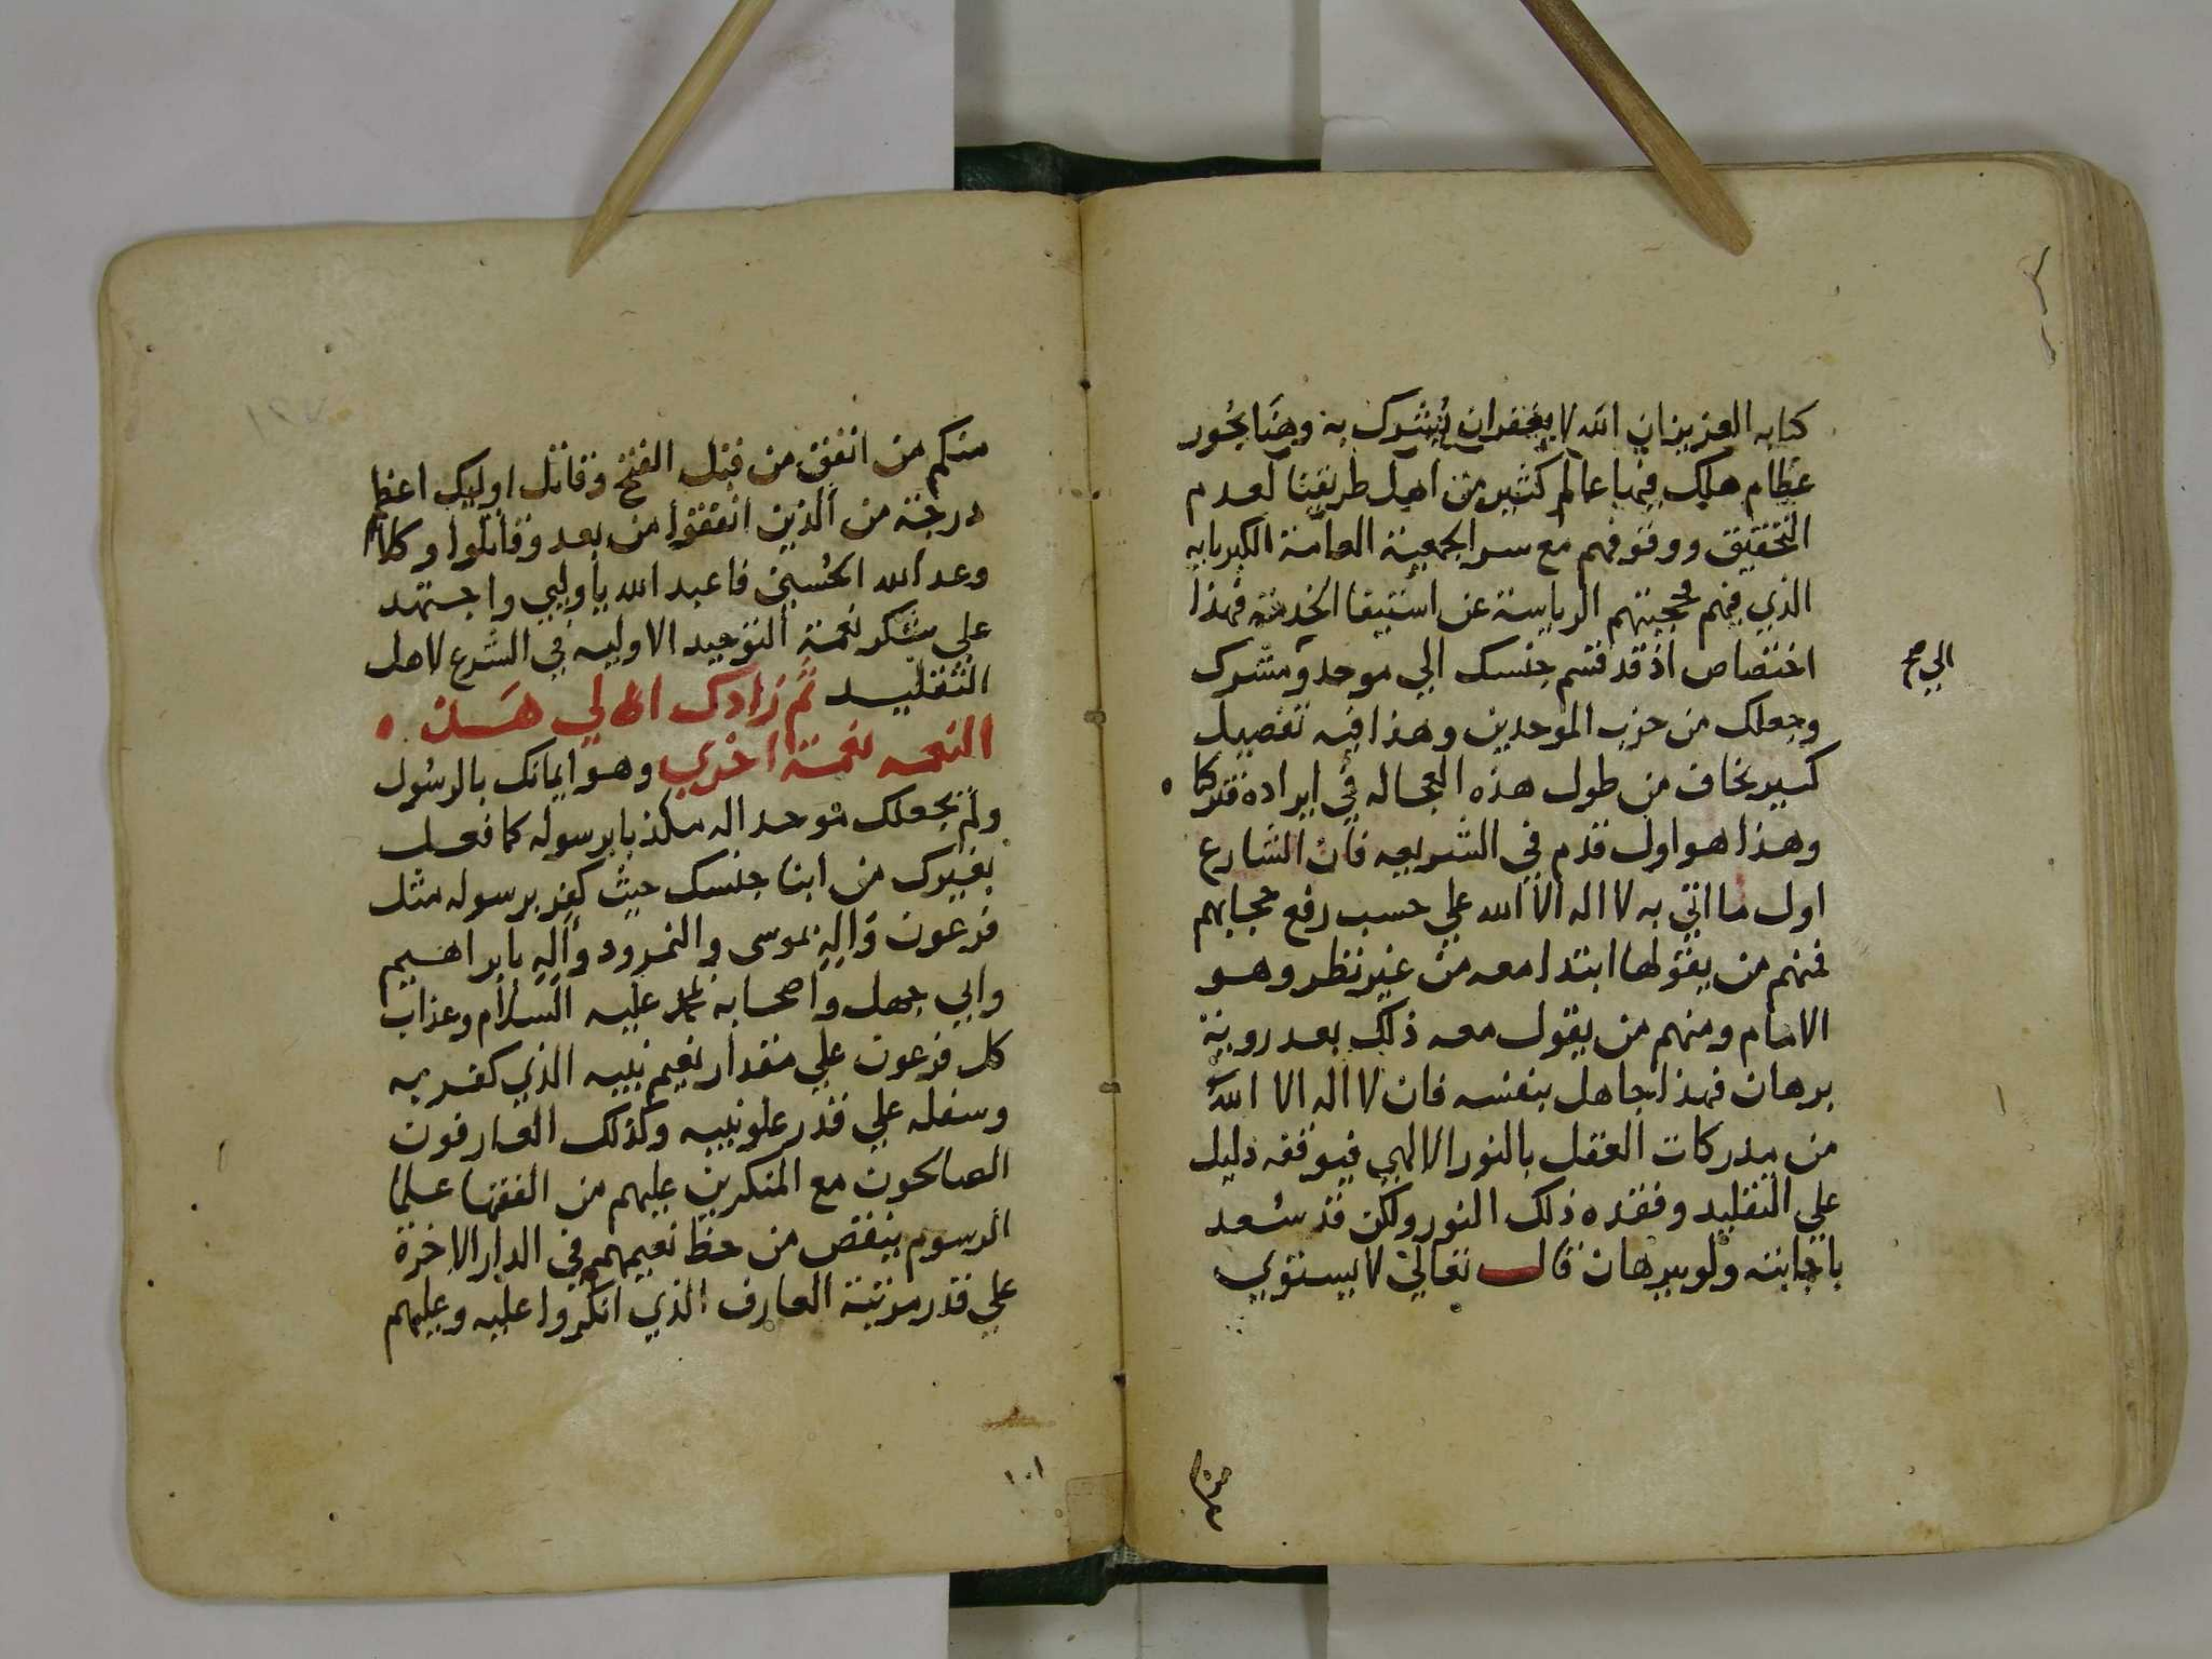 كتابه العزيز ان الله لا يغفر ان يُشرك به وهنا بحُور
عظام هلك فيها عالم كثير من اهل طريقنا لعدم
التحقيق ووقوفهم مع سر الجمعية العامة الكبريايه
الذي فيهم فحجبتهم الرياسة عن استيفا الخدمة فهذا
اختصاص اذ قد قسم جنسك الي موحد ومشرك
الي صح
وجعلك من حزب الموحدين وهذا فيه تفصيل
كبير نخاف من طول هذه العجاله في ايراده فتركنا
وهذا هو اول قدم في الشريعه فان الشارع
اول ما اتي به لا اله الا الله علي حسب رفع حجابهم
فمنهم من يقولها ابتدا معه من غير نظر وهو
الامام ومنهم من يقول معه ذلك بعد روية
برهان فهذا جاهل بنفسه فان لا اله الا الله
من مدركات العقل بالنور الالهي فيوقفه دليل
علي التقليد وفقده ذلك النور ولكن قد سُعد
باجابته ولو ببرهان قال تعالي لا يستوي
منكم
منكم من انفق من قبل الفتح وقاتل اوليك اعظم
درجة من الذين انفقوا من بعد وقاتلوا وكلا
وعد الله الحُسني فاعبد الله يا وليي واجتهد
علي شكر نعمة التوحيد الاوليه في الشرع لاهل
التقليد ثم زادك الهٰي هَذه
النعمه نعمة اخري وهو ايمانك بالرسُول
ولم يجعلك توحد اله مكذبا برسوله كما فعل
بغيرك من ابنا جنسك حيث كفر برسوله مثل
فرعون وَالِهِ بموسي والنمرود وآلِهِ بابراهيم
وابي جهل واصحابه بمحمد عليه السلام وعذاب
كل فرعون علي مقدار نعيم نبيه الذي كفر به
وسفله علي قدر علو نبيه وكذلك العارفون
الصالحون مع المنكرين عليهم من الفقها علما
الرسوم ينقص من حظ نعيمهم في الدار الاخرة
علي قدر مرتبة العارف الذي انكروا عليه وعليهم
١٠١